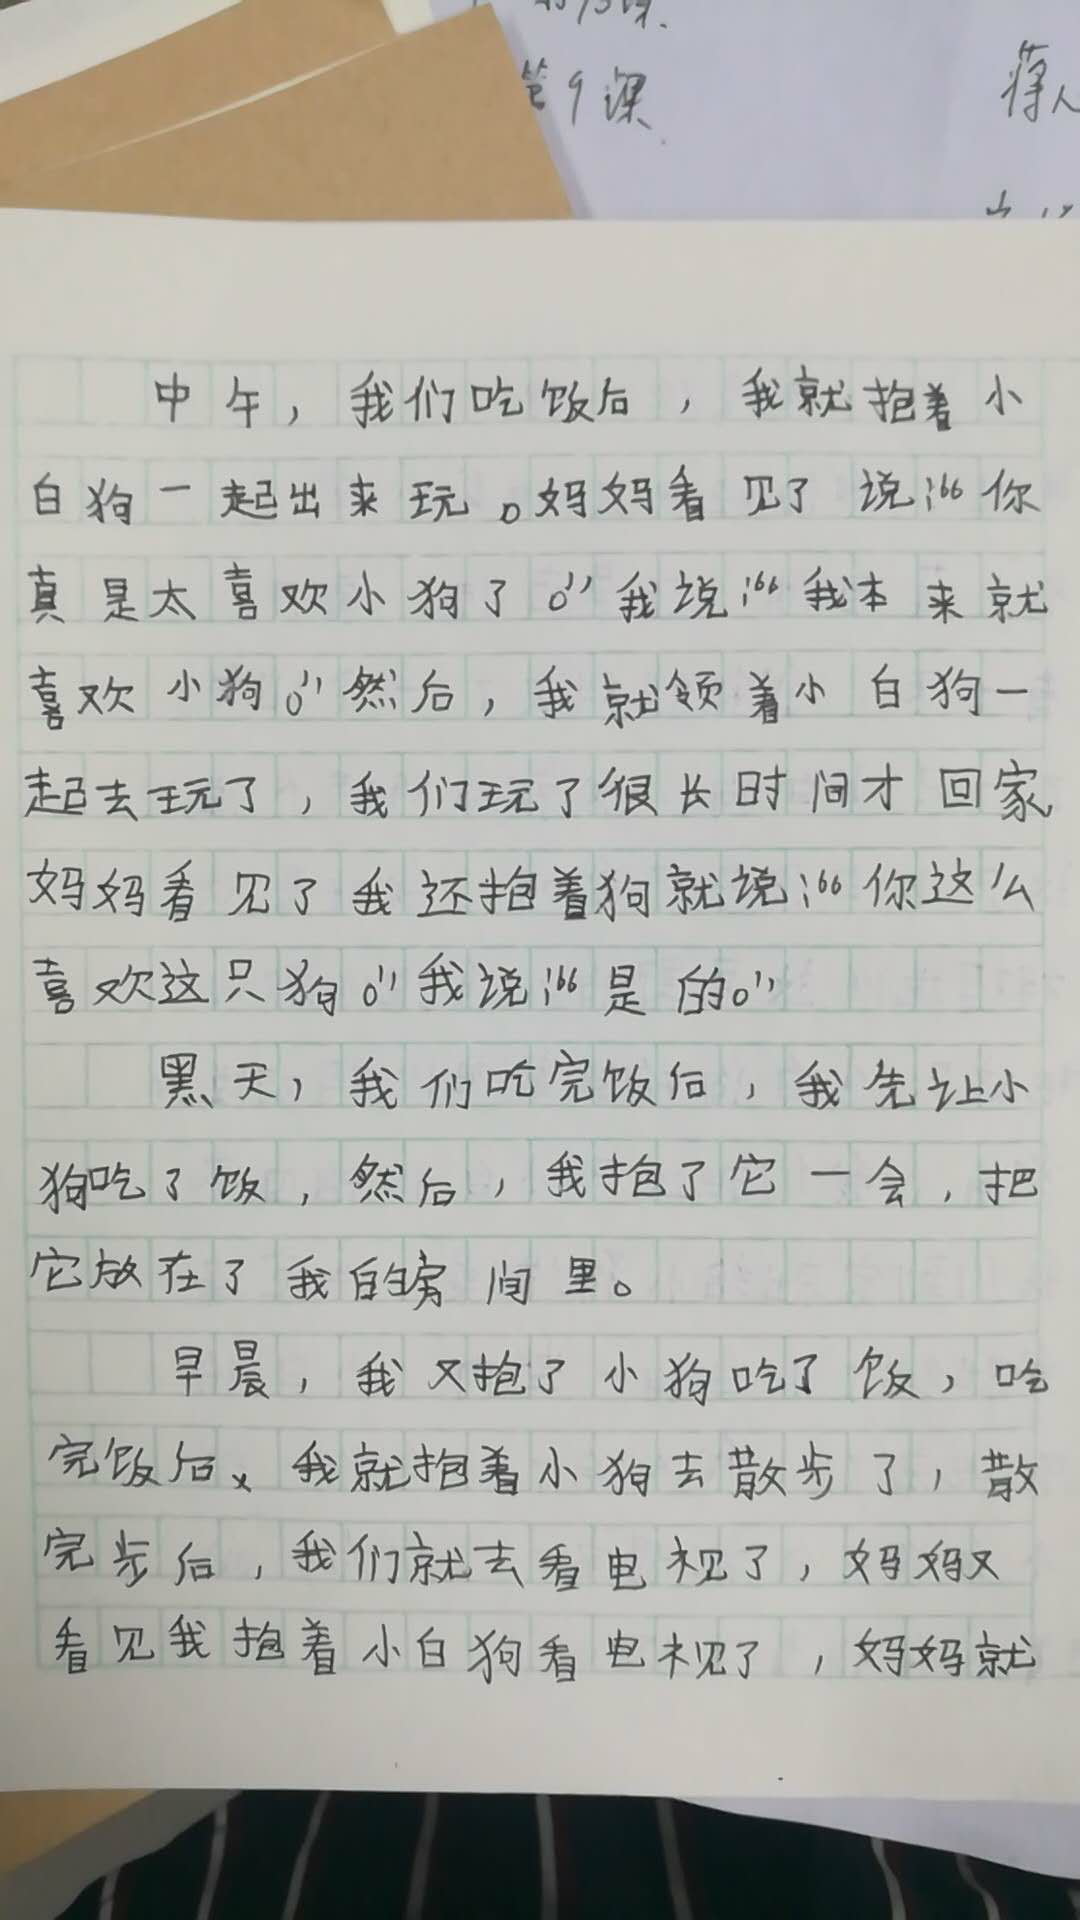 第9课
中午，我们吃饭后，我就抱着小
白狗一起出来玩。妈妈看见了说：“你
真是太喜欢小狗了。”我说：“我本来就
喜欢小狗。”然后，我就领着小白狗一
起去玩了，我们玩了很长时间才回家
妈妈看见了我还抱着狗就说：“你这么
喜欢这只狗。”我说：“是的。”
黑天，我们吃完饭后，我先让小
狗吃了饭，然后，我抱了它一会，把
它放在了我的房间里。
早晨，我又抱了小狗吃了饭，吃
完饭后、我就抱着小狗去散步了，散
完步后，我们就去看电视了，妈妈又
看见我抱着小白狗看电视了，妈妈就